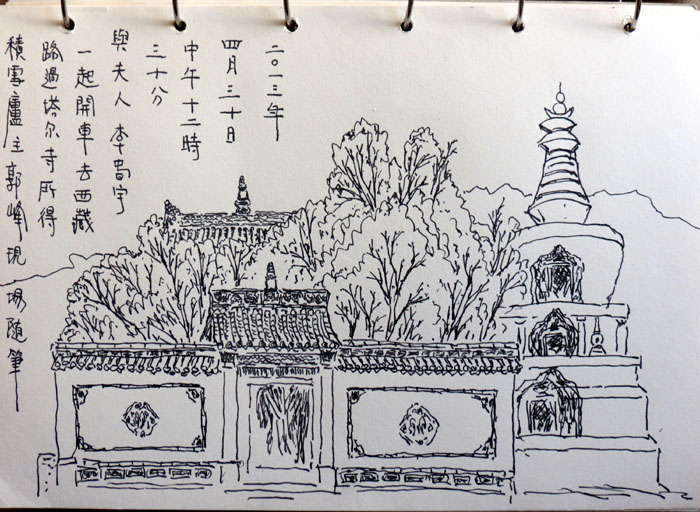 二〇一三年
四月三十日
中午十二時
三十分
與夫人李宇
一起開車去西藏
路過塔尔寺所得
積雪廬主郭峰現場随筆